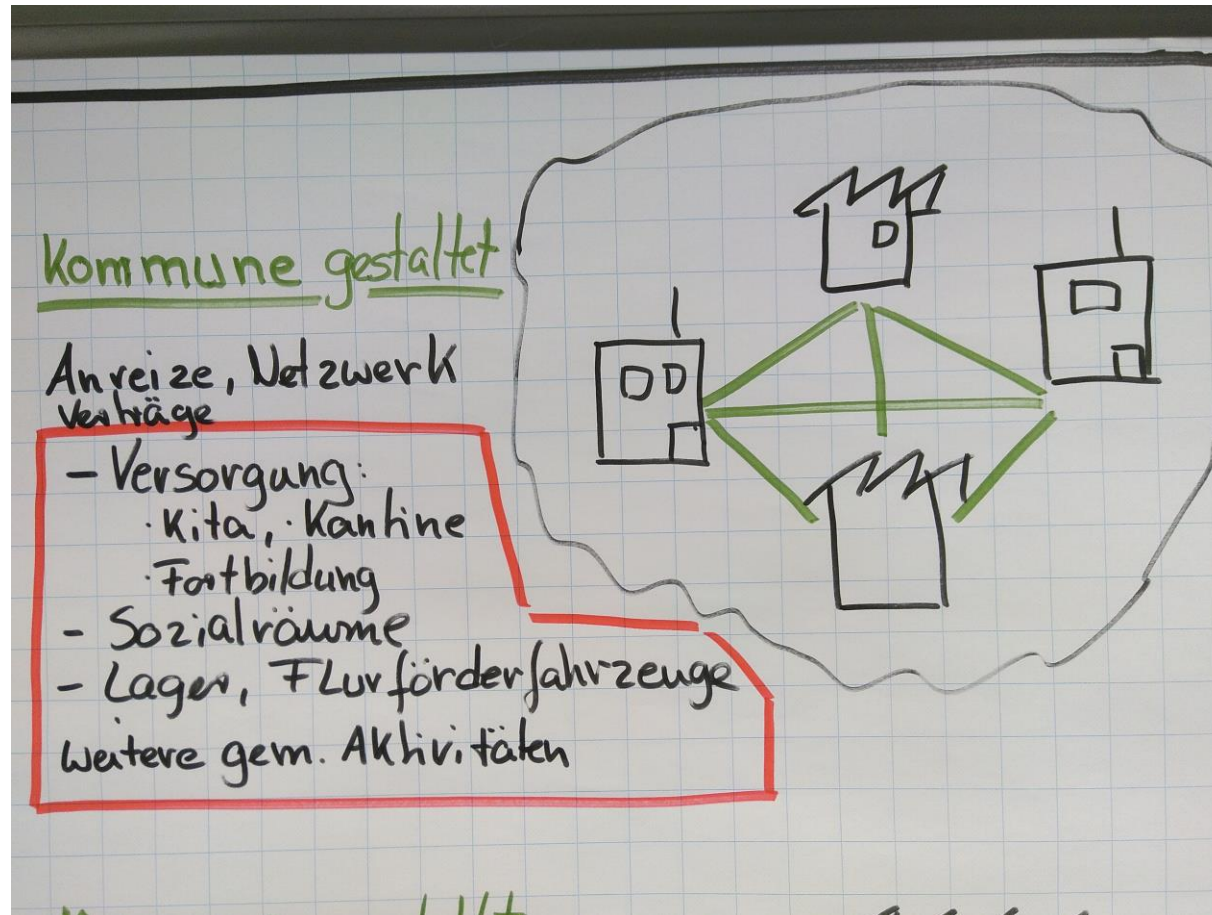 Kommune gestaltet
Anreize, Netzwerk
Verträge
- Versorgung:
· Kita, · Kantine
· Fortbildung
- Sozialräume
- Lager, Flurförderfahrzeuge
weitere gem. Aktivitäten